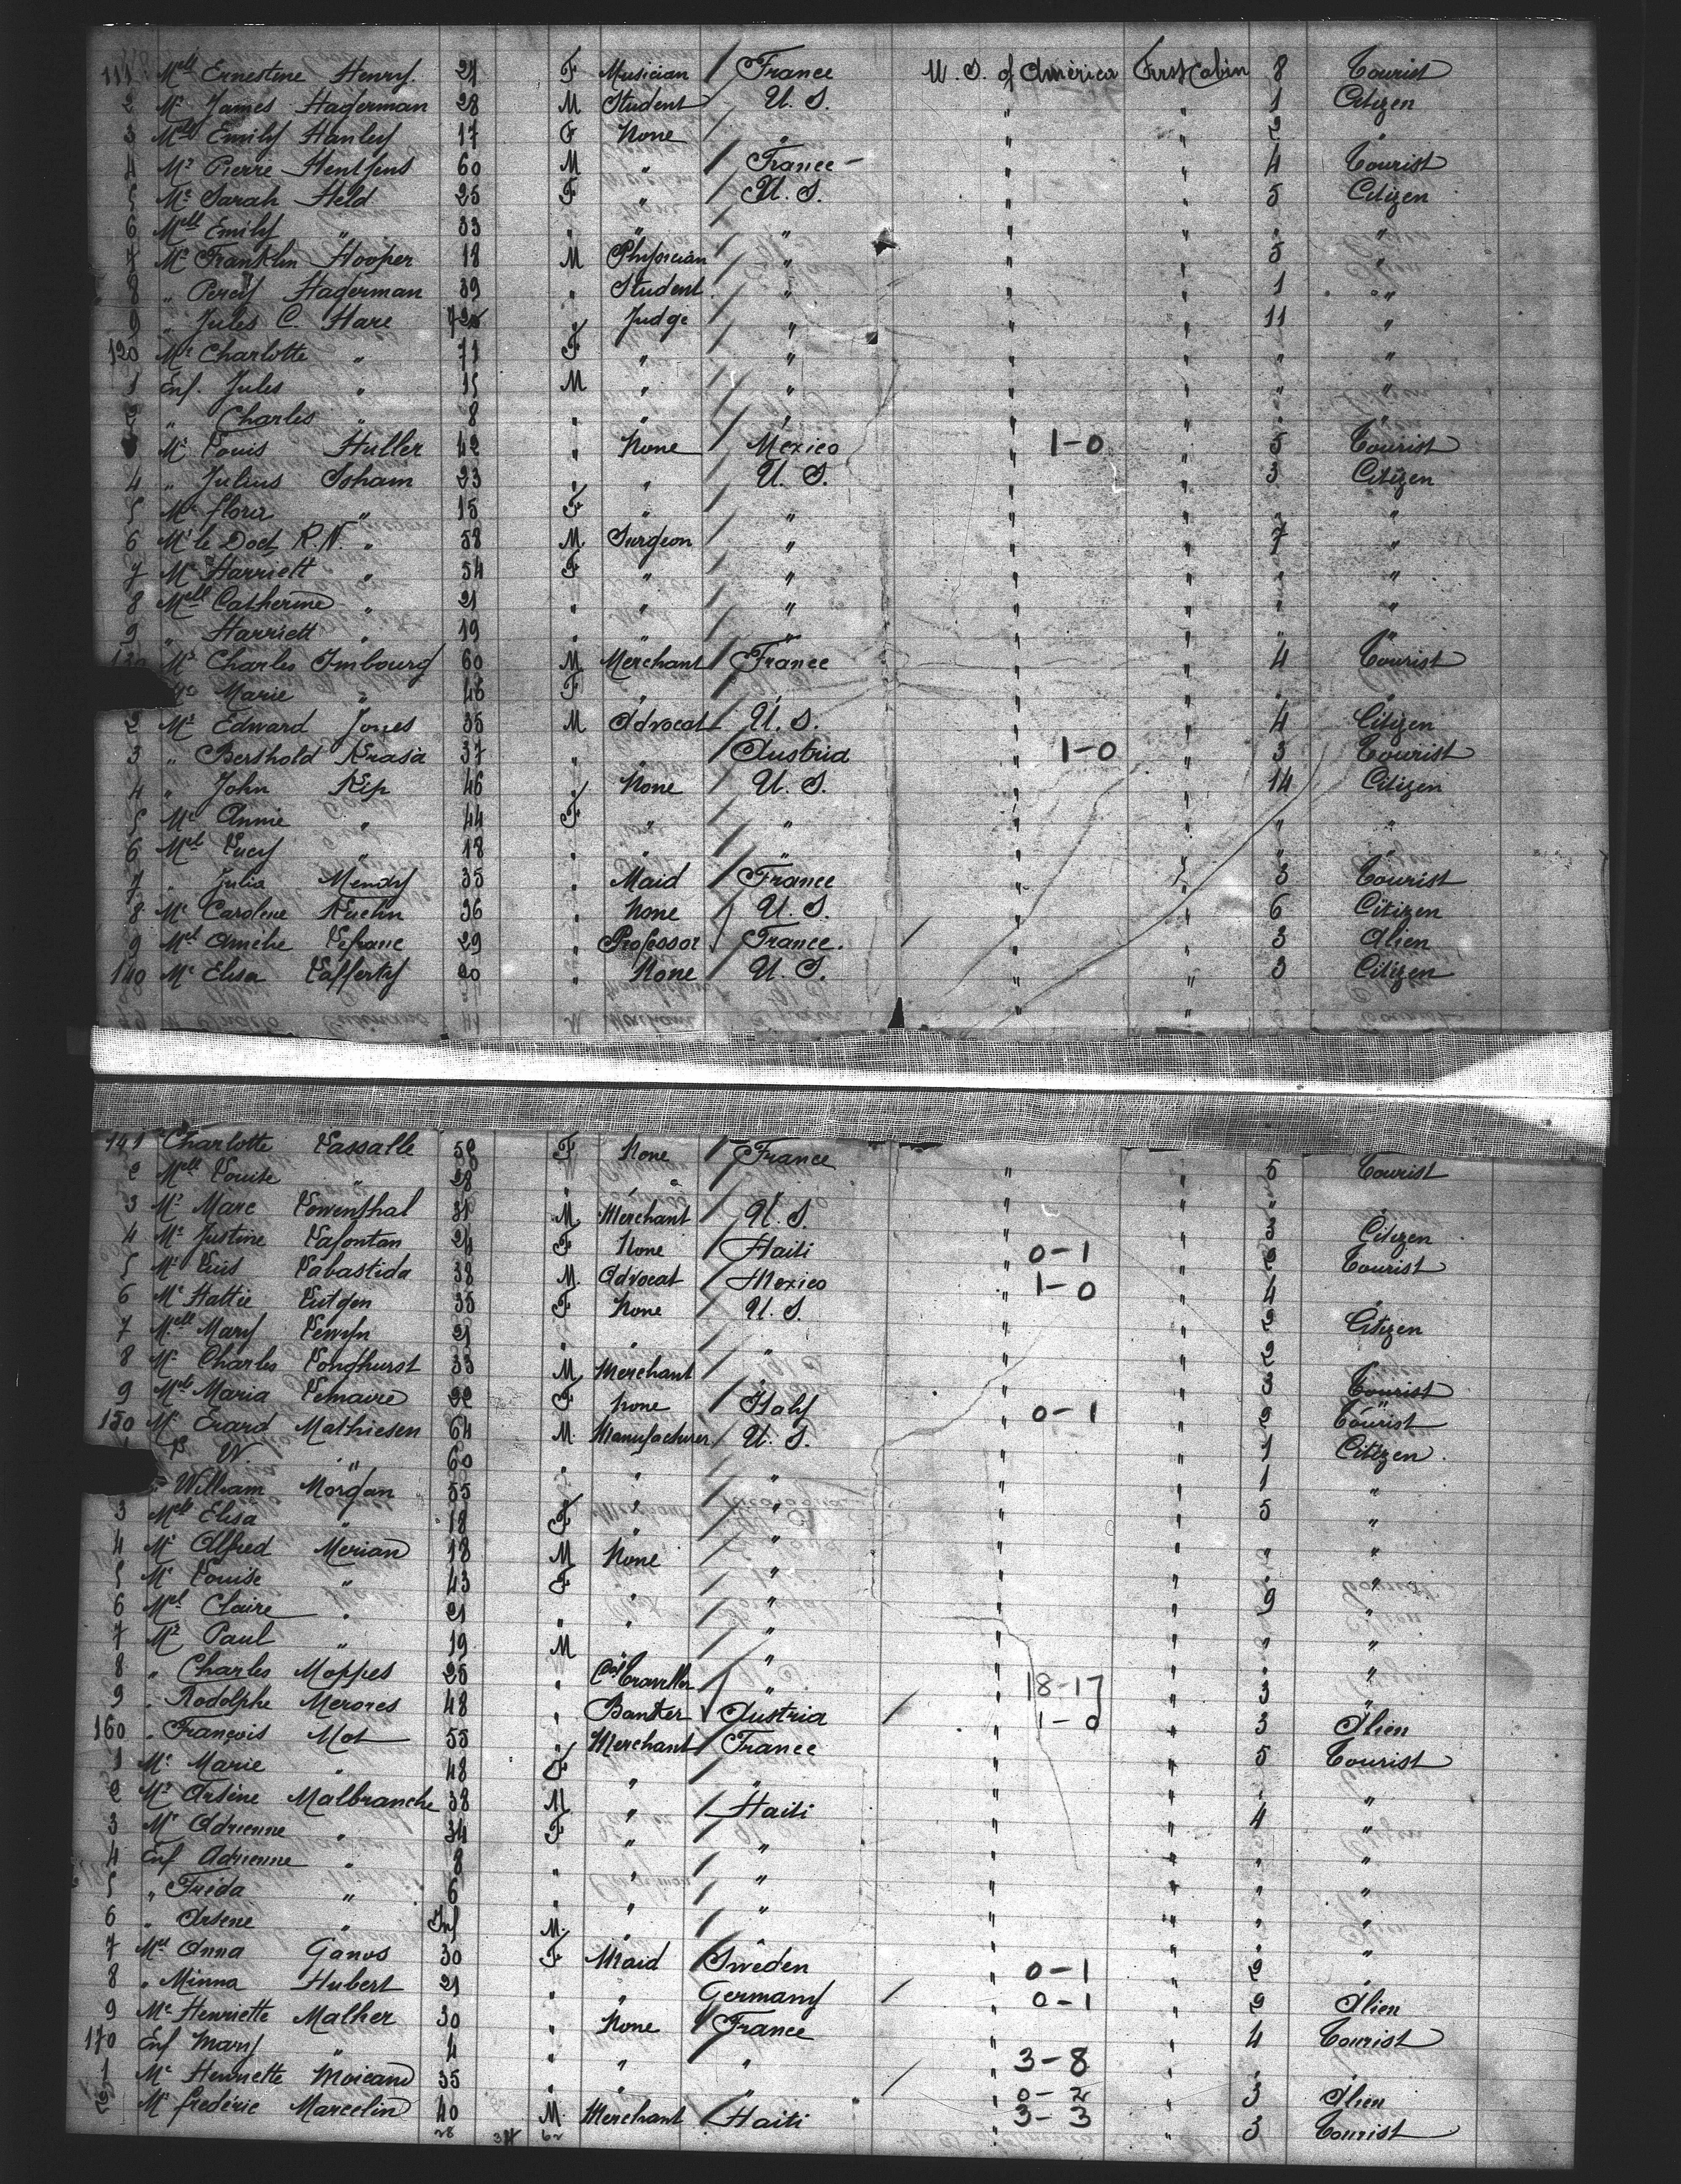 111 Mell Ernestine Henry 24 F Musician France U. S. of America First Cabin 8 Tourist
2 Mr James Hagerman 28 M Student U. S. " " 1 Citizen
3 Mell Emily Hanley 17 F None " " " 2 "
4 Mr Pierre 60 M " France " " 4 Tourist
5 Me Sarah Held 25 F " U. S. " " 5 Citizen
6 Mell Emily " 33 " " " " " " "
7 Mr Franklin Hooper 18 M Physician " " " 5 "
8 " Percy Hagerman 39 " Student " " " 1 "
9 " Jules C. Hare " Judge " " " 11 "
120 Me Charlotte " 71 F " " " " " "
1 Enf. Jules " 15 M " " " " " "
2 " Charles " 8 " " " " " " "
Mr Louis Huller 42 " None Mexico 1-0 " 5 Tourist
4 " Julius Isham 23 " " U. S. " " 3 Citizen
5 Me flora " 15 F " " " " " "
6 Mr le Doct R. N. " 58 M Surgeon " " " 7 "
7 Me Harriett " 54 F " " " " " "
8 Mell Catherine " 21 " " " " " " "
9 " Harriett " 19 " " " " " " "
130 Mr Charles Imbourg 60 M Merchant France " " 4 Tourist
Me Marie " 46 F " " " " " "
2 Mr Edward Jones 35 M Advocat U. S. " " 4 Citizen
3 " Berthold Krasa 37 " " Austria 1-0 " 3 Tourist
4 " John Kip 46 " None U. S. " " 14 Citizen
5 Me Annie " 44 F " " " " " "
6 Mel Lucy " 18 " " " " " " "
7 " Julia Mendy 35 " Maid France " " 3 Tourist
8 Me Carolene Kuehn 36 " None U. S. " " 6 Citizen
9 Mel Amelie Lefranc 29 " Professor France. " " 3 Alien
140 Me Elisa Lafferty 20 " None U. S. " " 3 Citizen
141 Charlotte Lassalle 52 F None France " " 5 Tourist
2 Mell Louise " 28 " " " " " " "
3 Mr Marc Lowenthal 31 M Merchant U. S. " " 3 Citizen
4 Me Justine Lafontan 24 F None Haiti 0-1 " 2 Tourist
5 Mr Luis Labastida 38 M. Advocat Mexico 1-0 " 4 "
6 Me Hattie Lutgen 35 F None U. S. " " 2 Citizen
7 Mell Mary 21 " " " " " 2 "
8 Mr Charles Longhurst 33 M Merchant " " " 3 Tourist
9 Mel Maria Lemaire 22 F None Italy 0-1 " 2 Tourist
150 Mr Erard Mathiesen 64 M. Manufacturer U. S. " " 1 Citizen
W. " 60 " " " " " 1 "
William Morgan 55 " " " " " 5 "
3 Mell Elisa " 18 F " " " " " "
4 Mr Alfred Merian 18 M None " " " " "
5 Me Louise " 43 F " " " " 9 "
6 Mel Claire " 21 " " " " " " "
7 Mr Paul " 19 M " " " " " "
8 " Charles Moppes 26 " Coal Traveller " 18-17 " 3 "
9 " Rodolphe Merores 48 " Banker Austria 1-0 " 3 Alien
160 " François Mot 55 " Merchant France " " 5 Tourist
1 Me Marie " 48 F " " " " " "
2 Mr Arsène Malbranche 38 M " Haiti " " 4 "
3 Me Adrienne " 34 F " " " " " "
4 Enf Adrienne " 8 " " " " " " "
5 " Fréda " 6 " " " " " " "
6 " Arsene " Inf M. " " " " " "
7 Mel Anna Ganos 30 F Maid Sweden 0-1 " 2 "
8 " Minna Hubert 21 " " Germany 0-1 " 2 Alien
9 Me Henriette Malher 30 " None France " " 4 Tourist
170 Enf Mary " 4 " " " 3-8 " " "
1 Me Henriette Moicand 35 " " " 0-2 " 3 Alien
2 Mr frederic Marcelin 40 M. Merchant Haiti 3-3 " 3 Tourist
28 34 62